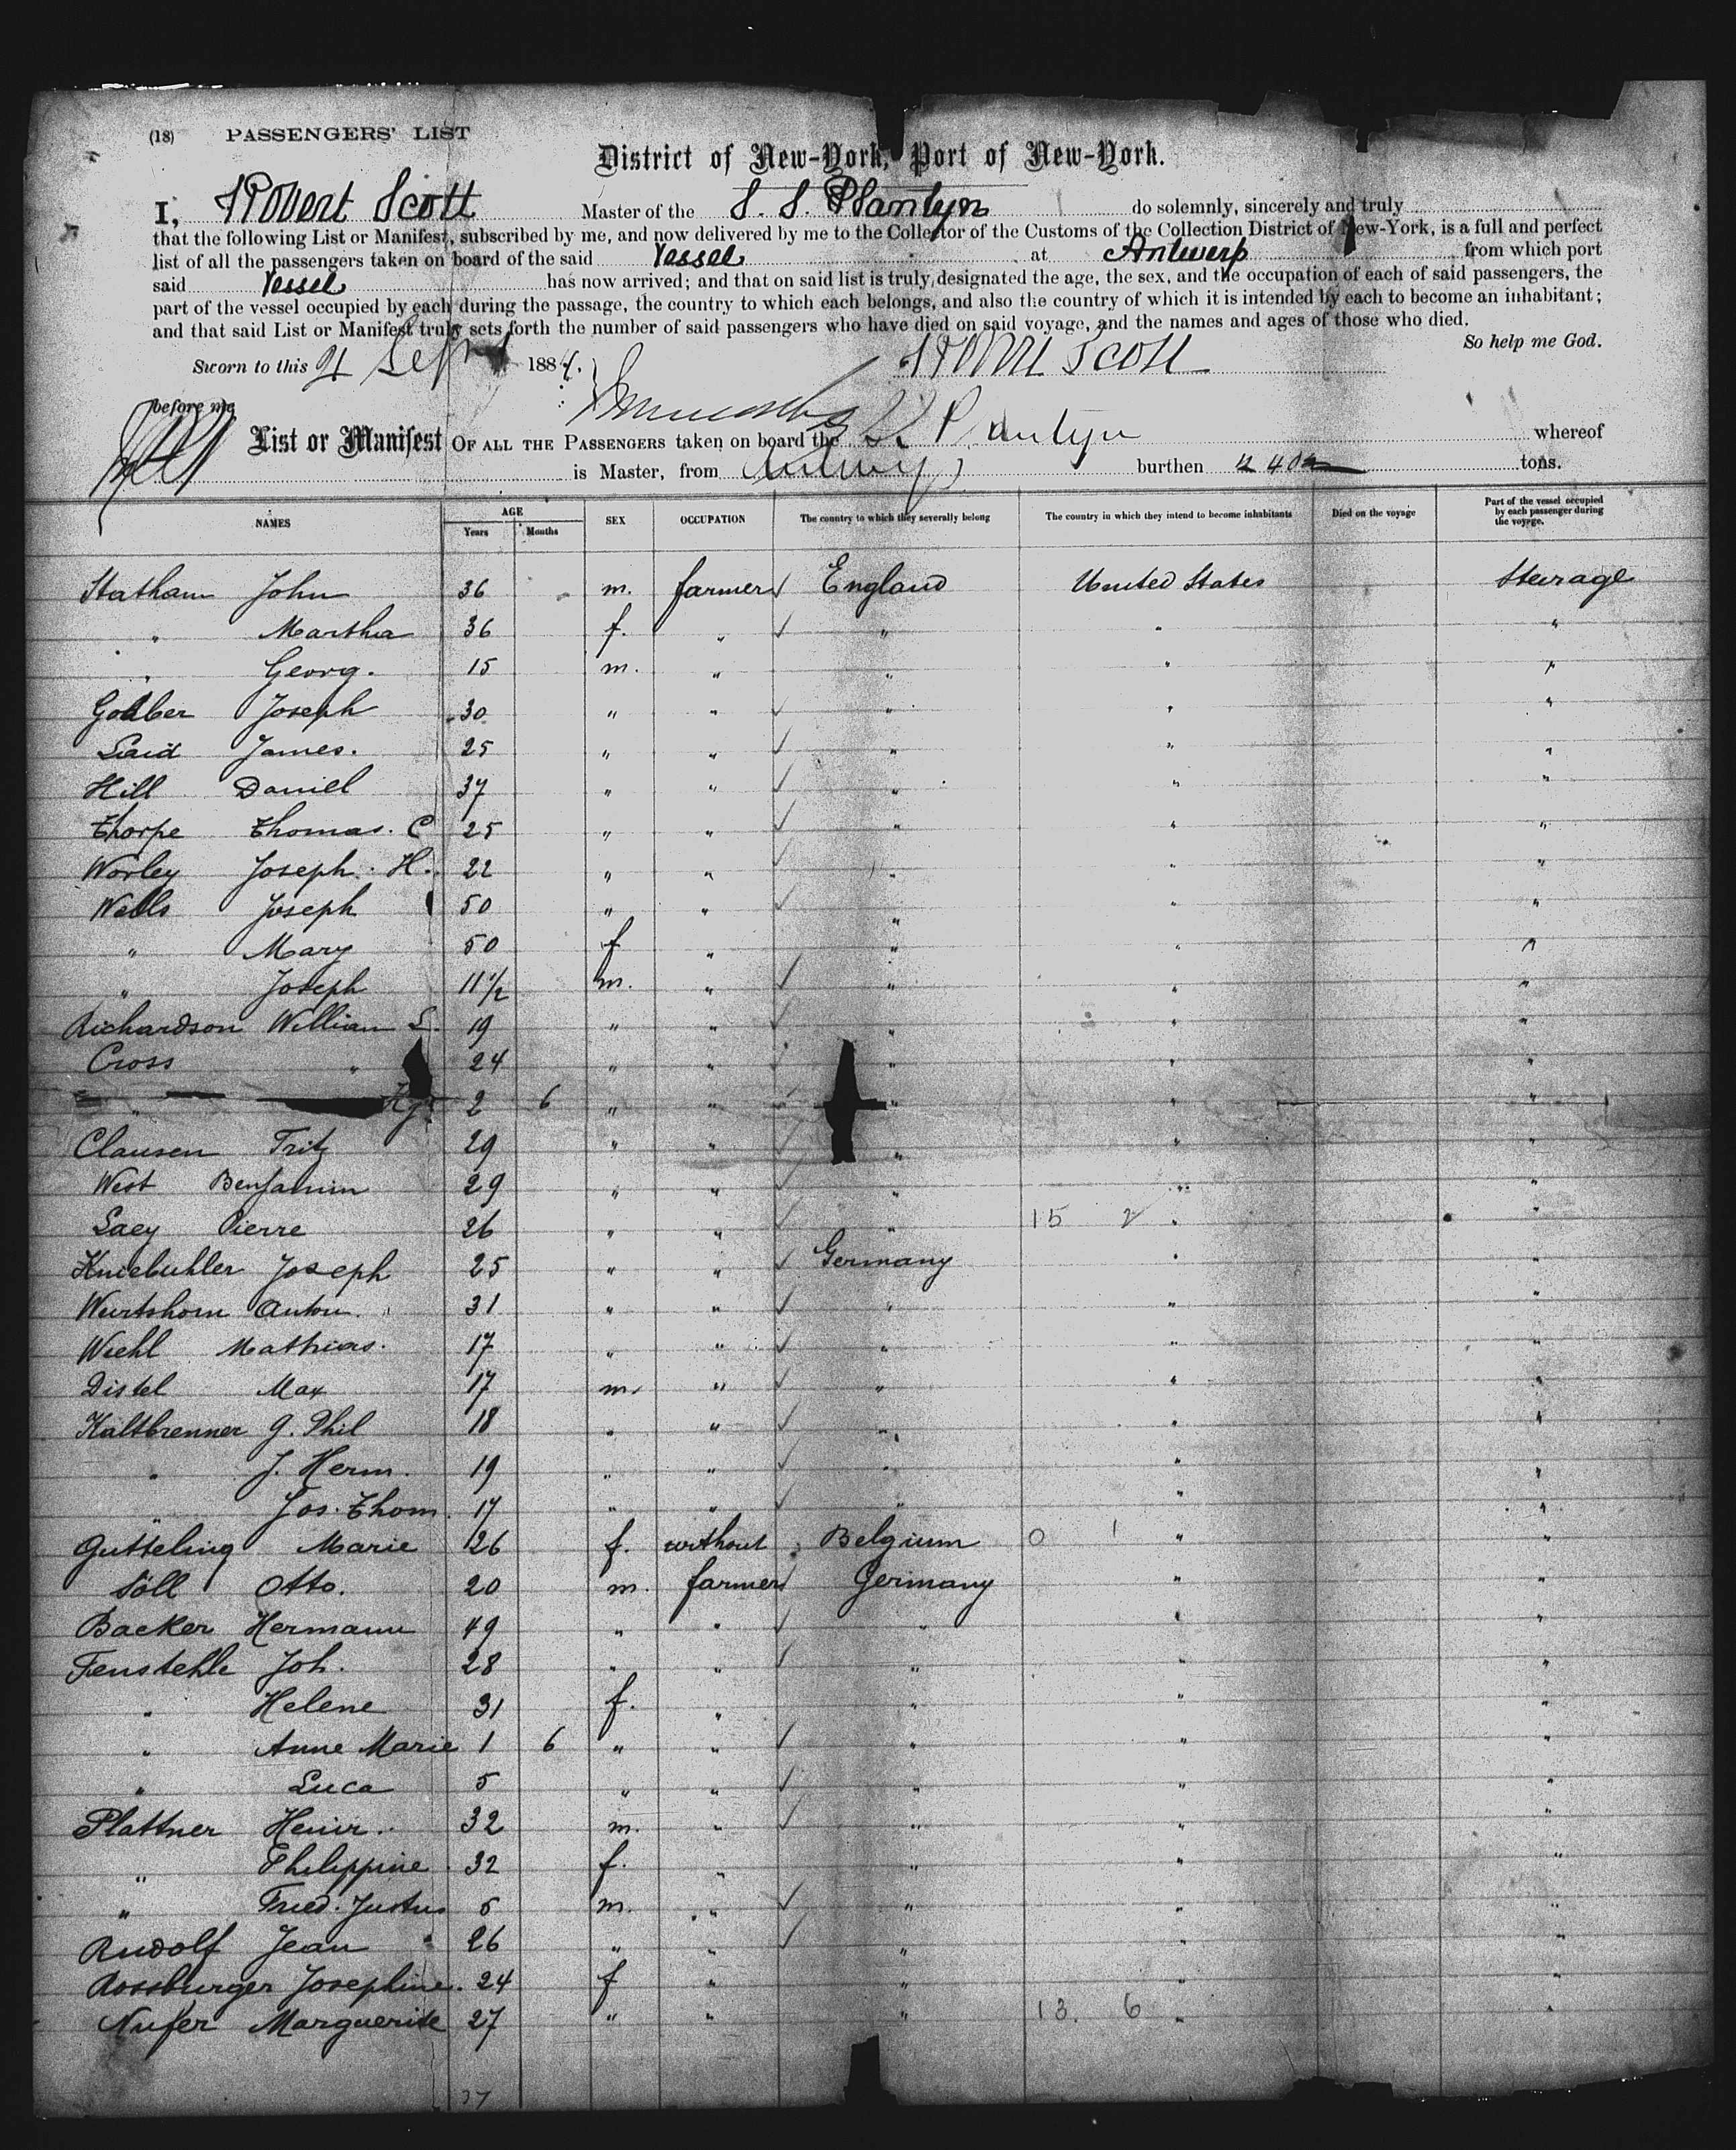 (18) PASSENGERS' LIST
District of New-York, Port of New-York.
I, Robert Scott Master of the S. S. Plantyn do solemnly, sincerely and truly
that the following List or Manifest, subscribed by me, and now delivered by me to the Collector of the Customs of the Collection District of New-York, is a full and perfect
list of all the passengers taken on board of the said Vessel at Antwerp from which port
said Vessel has now arrived; and that on said list is truly designated the age, the sex, and the occupation of each of said passengers, the
part of the vessel occupied by each during the passage, the country to which each belongs, and also the country of which it is intended by each to become an inhabitant;
and that said List or Manifest truly sets forth the number of said passengers who have died on said voyage, and the names and ages of those who died.
So help me God.
Sworn to this Sept 188 Robert Scott
before me
List or Manifest OF ALL THE PASSENGERS taken on board the Plantyn whereof
is Master, from Antwerp burthen tons.
NAMES AGE Years Months SEX OCCUPATION The country to which they severally belong The country in which they intend to become inhabitants Died on the voyage Part of the vessel occupied by each passenger during the voyage.
Statham John 36 m. farmer ✓ England United States Steerage
" Martha 36 f. " ✓ " " "
" Georg. 15 m. " " " "
Joseph 30 " " ✓ " " "
Laid James. 25 " " ✓ " " "
Hill Daniel 37 " " ✓ " " "
Thorpe Thomas. C 25 " " ✓ " " "
Worley Joseph. H. 22 " " ✓ " " "
Wells Joseph 50 " " ✓ " " "
" Mary 50 f " " " "
" Joseph 11 1/2 m. " ✓ " " "
Richardson William L. 19 " " ✓ " " "
Cross " 24 " " ✓ " " "
" 2 6 " " ✓ " " "
Clausen Fritz 29 " " ✓ " " "
West Benjamin 29 " " ✓ " " "
Laey Pierre 26 " " ✓ " 15 2 " "
Kniebuhler Joseph 25 " " ✓ Germany " "
Wurtshorn Anton. 31 " " ✓ " " "
Wiehl Mathias. 17 " " ✓ " " "
Distel Max 17 m. " ✓ " " "
Kaltbrenner G. Phil 18 " " ✓ " " "
" J. Herm. 19 " " ✓ " " "
" Jos. Thom. 17 " " ✓ " " "
Gutteling Marie 26 f. without Belgium 0 1 " "
Söll Otto. 20 m. farmer ✓ Germany " "
Backer Hermann 49 " " ✓ " " "
Fenstehle Joh. 28 " " ✓ " " "
" Helene 31 f. " " " "
" Anne Marie 1 6 " " ✓ " " "
" Luca 5 " " ✓ " " "
Plattner Heinr. 32 m. " ✓ " " "
" Philippine 32 f. " " " "
" Fried. Justus 5 m. " ✓ " " "
Rudolf Jean 26 " " ✓ " " "
Rossburger Josephine. 24 f " " " "
Nufer Marguerite 27 " " " 13. 6 " "
37